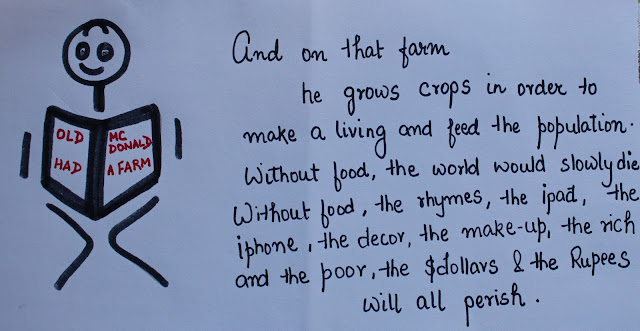 OLD MC
DONALD
HAD A FARM
And on that farm
he grows crops in order to
make a living and feed the population.
Without food, the world would slowly die
Without food, the rhymes, the ipad, the
iphone, the decor, the make-up, the rich
and the poor, the $dollars & the Rupees
will all perish.